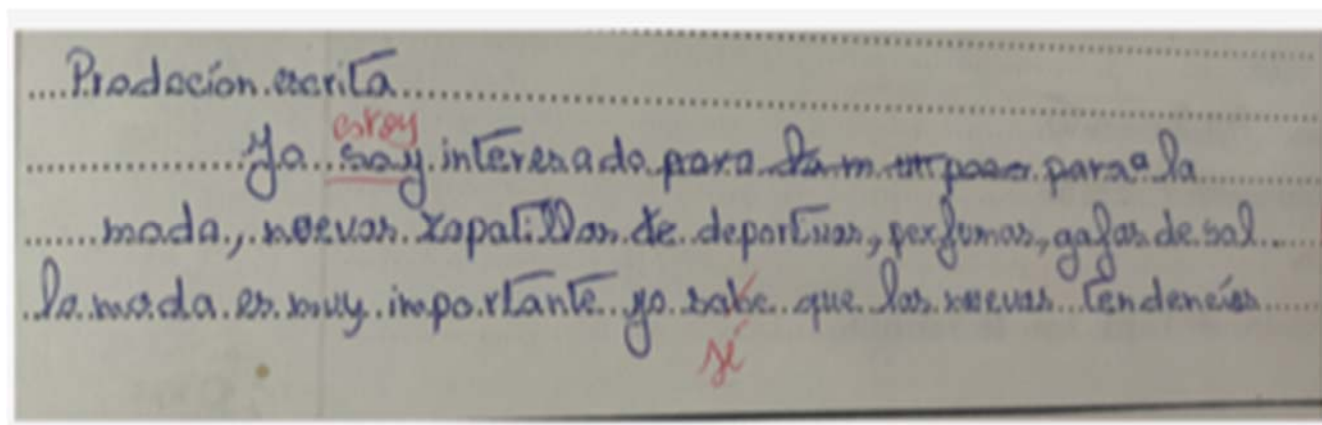 Prodocion escrita
estoy
Yo soy interesado para la m un para para la
moda, nuevas zapatillos de deportivas, perfumas, gafas de sol
la moda es muy importante yo sabe que las nuevas tendencias
sé